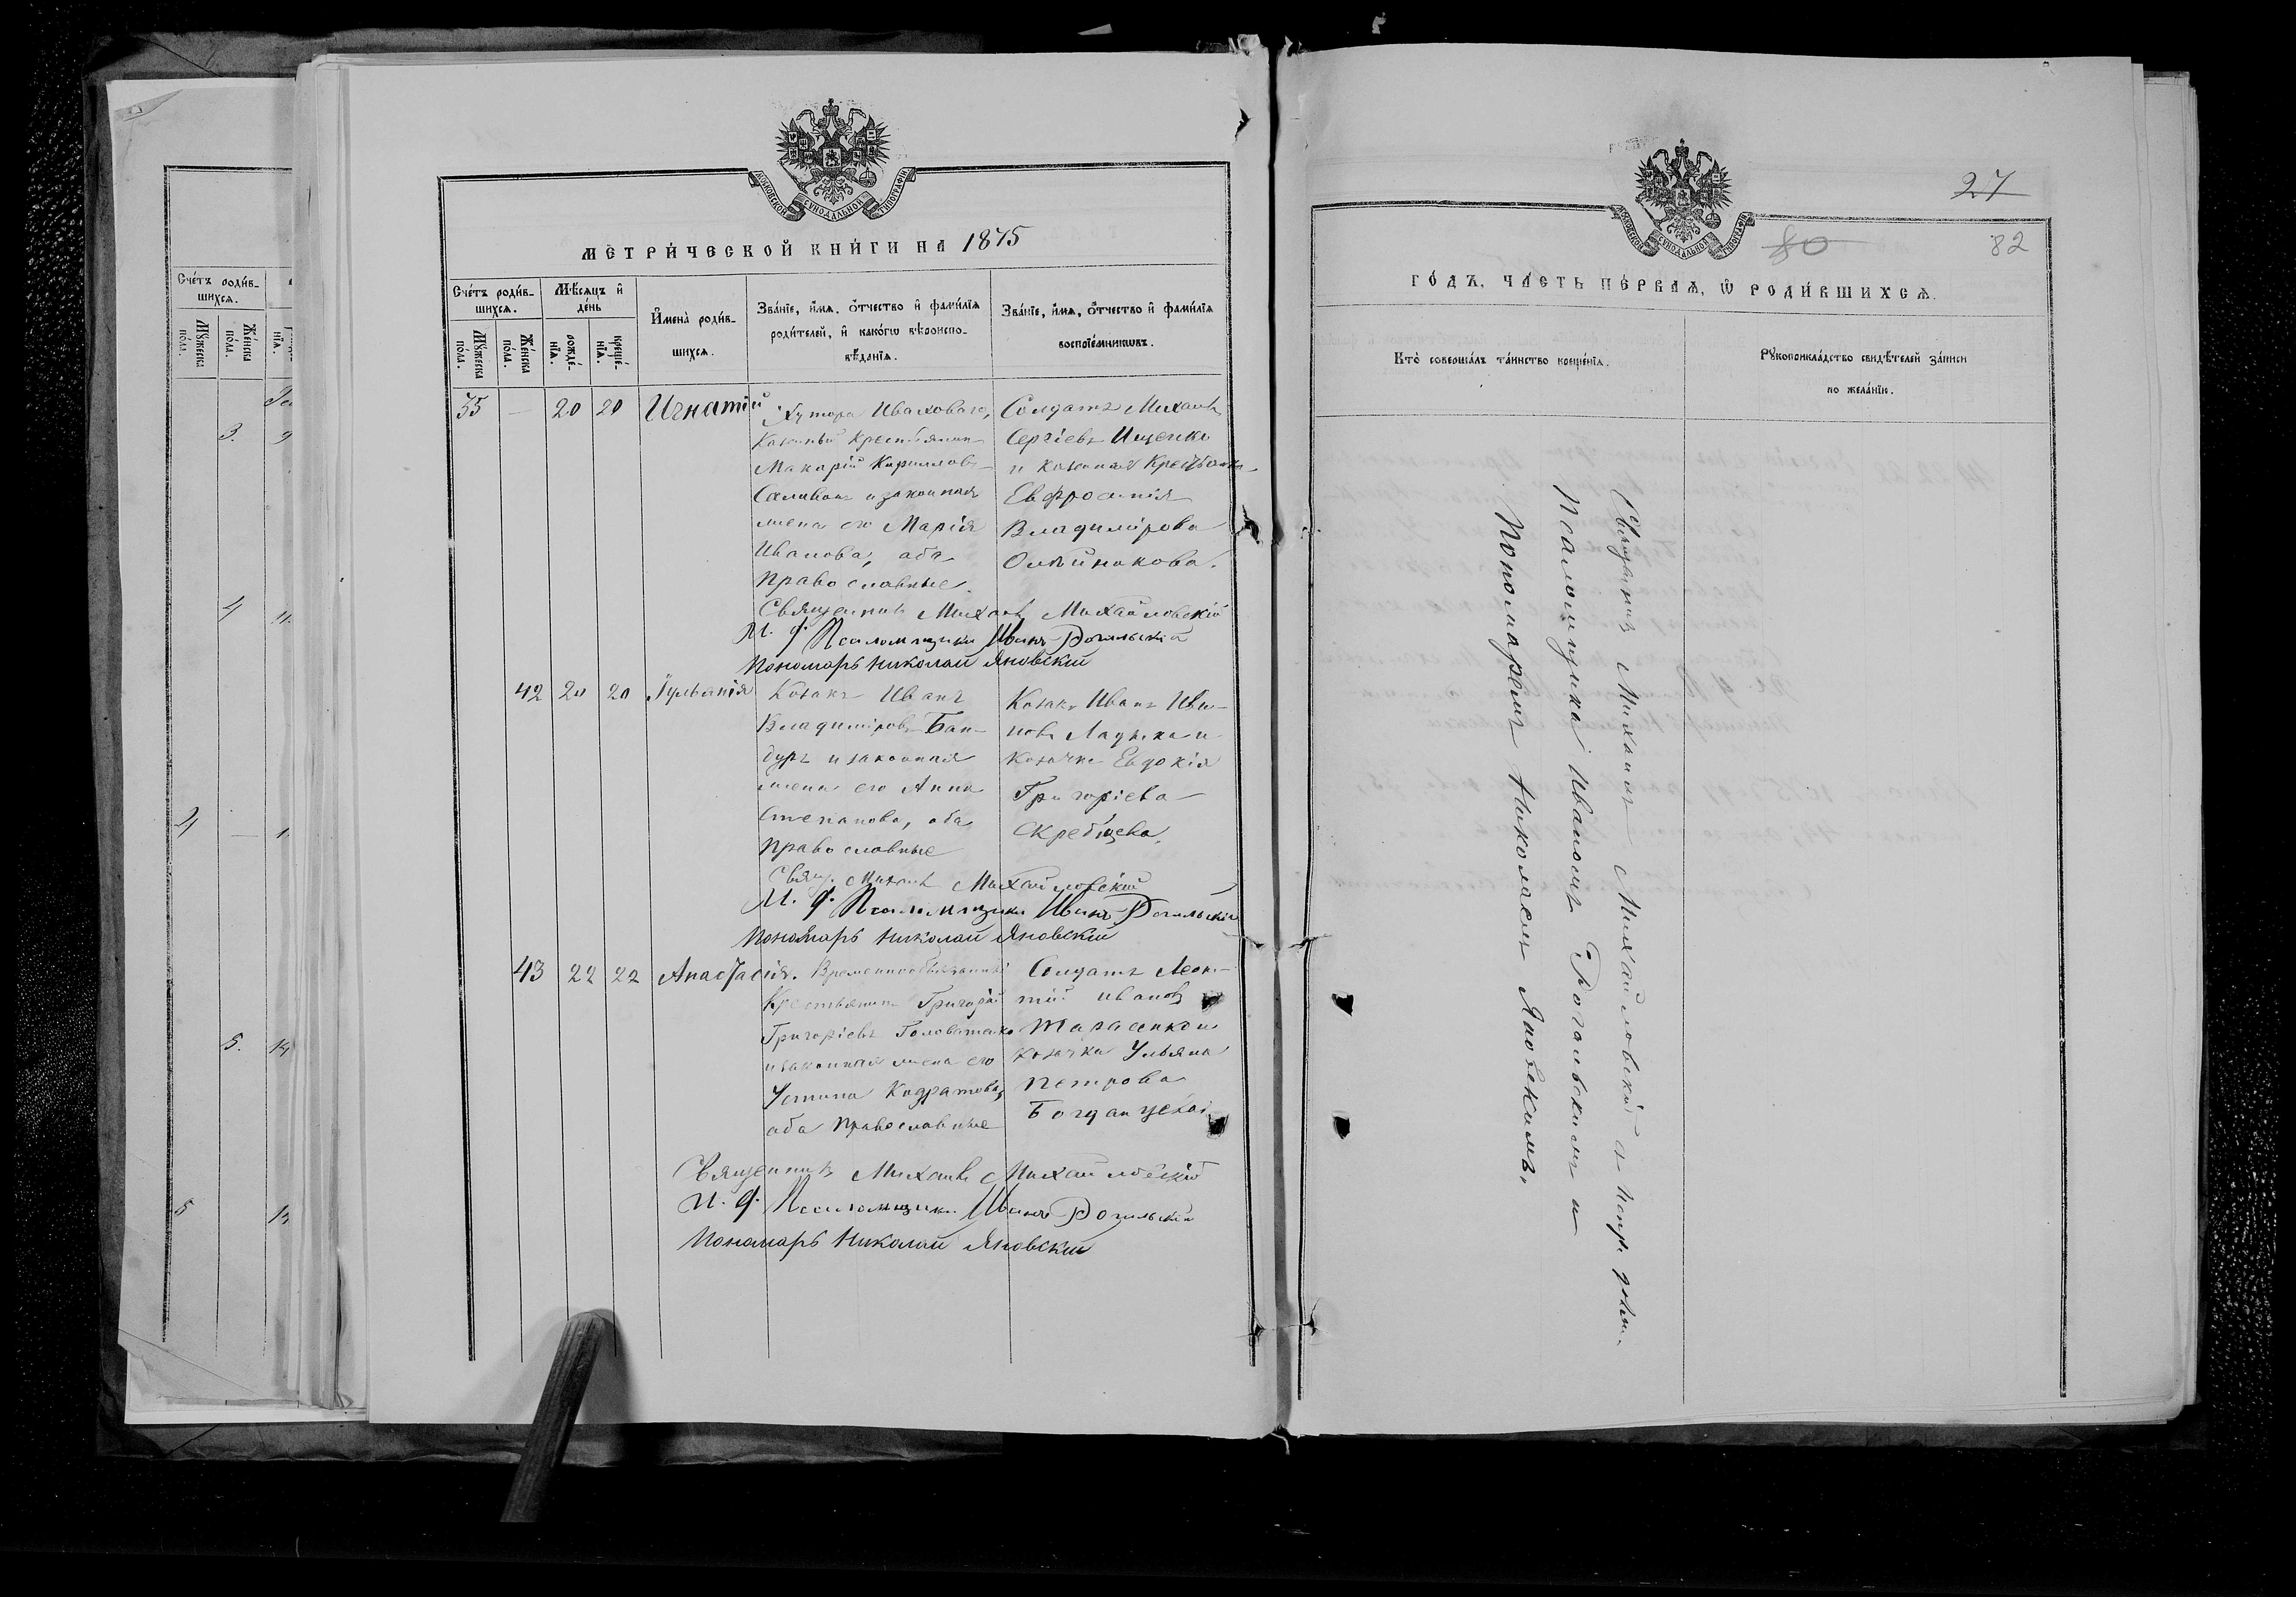 МОСКОВСКОЙ СѴНОДАЛЬНОЙ ТИПОГРАФІИ
МЕТРИ́ЧЕСКОЙ КНИ́ГИ НА 1875
Сче́тъ роди́в-
шихся.
Мѣ́сяцъ и҆
де́нь
Му́жеска
по́ла.
Же́нска
по́ла.
рожде́-
нїѧ.
креще́-
нїѧ.
И҆мена̀ роди́в-
шихся.
Зва́нїе, и҆́мѧ, ѻ҆́тчество и҆ фами́лїѧ
роди́телей, и҆ како́гѡ вѣроиспо-
вѣ́данїѧ.
Зва́нїе, и҆́мѧ, ѻ҆́тчество и҆ фами́лїѧ
воспрїе́мникѡвъ.
55 — 20 20 Игнатій
Хутора Ивахова,
Казенный Крестьянин
Макарій Кириллов
Саливон и законная
жена его Марія
Иванова, оба
православные.
Солдатъ Михаилъ
Сергіевъ Ищенко
и казенная Крестьянка
Евфросинія
Владимірова
Олѣйникова.
Священникъ Михаилъ Михайловскій
И. д. Псаломщика Иванъ Рогальскій
Пономарь Николай Яновскій
42 20 20 Іуліанія
Козакъ Иванъ
Владиміровъ Бан-
дуръ и законная
жена его Анна
Степанова, оба
православные
Козакъ Иванъ Ива-
новъ Ладыка и
козачка Евдокія
Григоріева
Свящ. Михаилъ Михайловскій
И. д. Псаломщика Иванъ Рогальскій
Пономарь Николай Яновскій
43 22 22 Анастасія.
Временнообязанный
Крестьянин Григорій
Григоріевъ Головатенко
и законная жена его
Устина Кодратова,
оба православные
Солдатъ Леон-
тій Ивановъ
Тарасенко и
козачка Ульяна
Петрова
Священникъ Михаилъ Михайловскій
И. д. Псаломщика Иванъ Рогальскій
Пономарь Николай Яновскій
27
МОСКОВСКОЙ СѴНОДАЛЬНОЙ ТИПОГРАФІИ
80
82
ГО́ДЪ, ЧА́СТЬ ПЕ́РВАЯ, Ѡ҆ РОДИ́ВШИХСЯ.
Кто̀ соверша́лъ та́инство креще́нїѧ.
Рꙋкоприкла́дство свидѣ́телей за́писи
по жела́нїю.
Священник Михаилъ Михайловскій с
Псаломщика Иваномъ Рогальскимъ и
Пономаремъ Николаемъ Яновскимъ.
Сче́тъ роди́в-
шихся.
Му́жеска
по́ла.
Же́нска
по́ла.
3. 9
4 11
4 —
5. 14
5